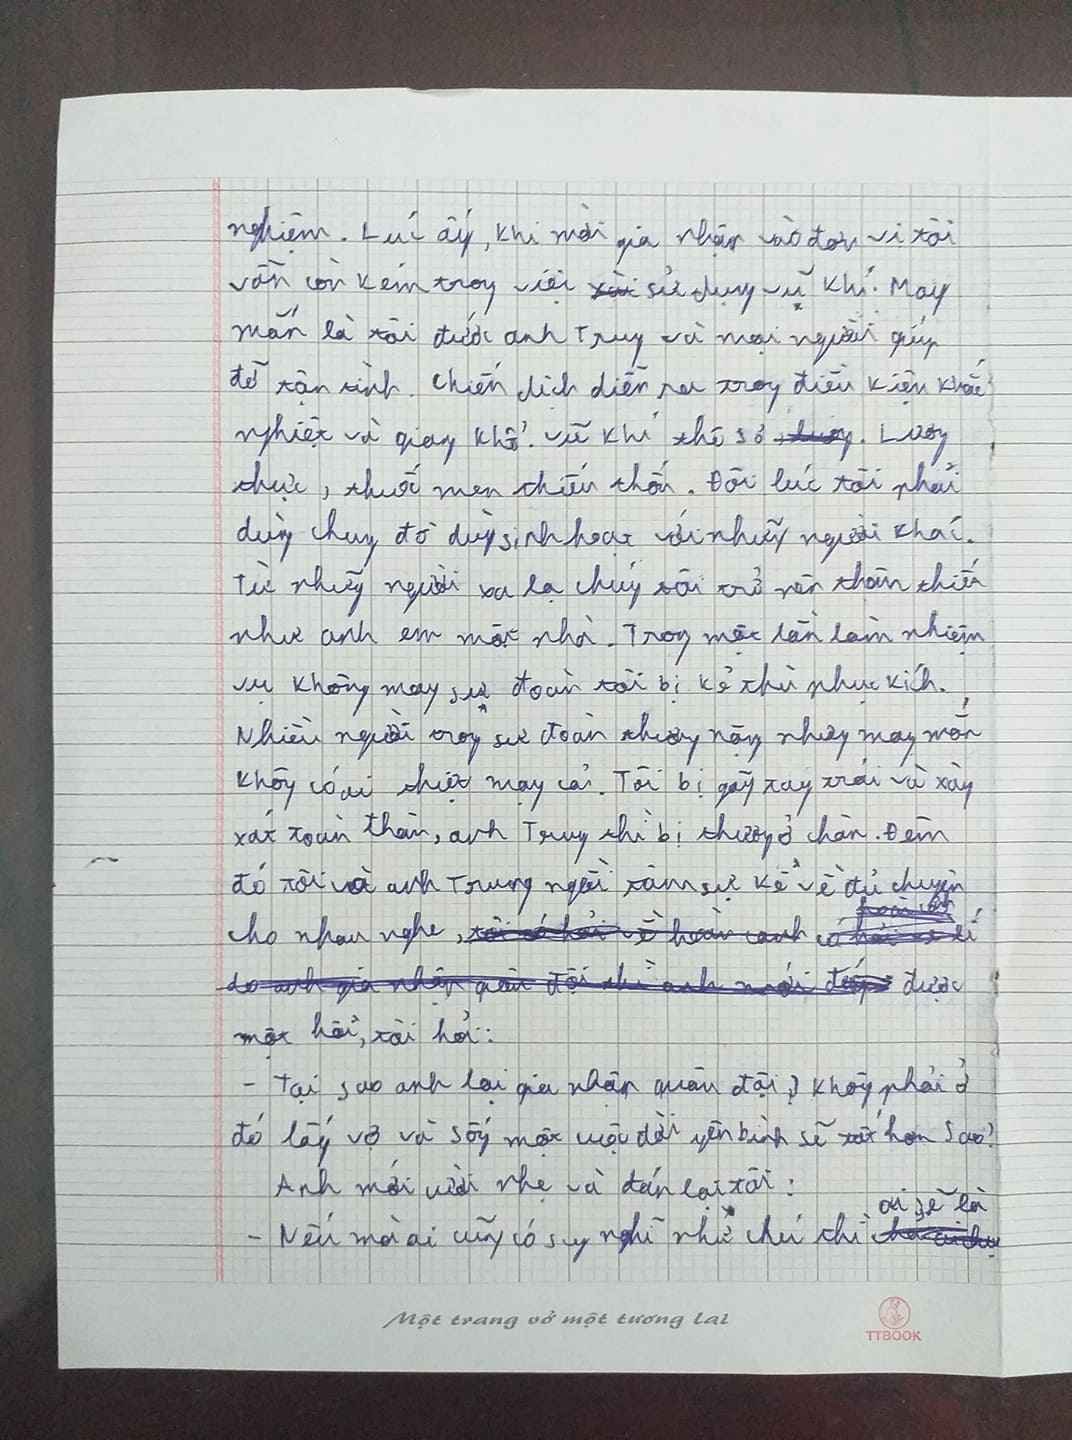 nghiệm. Lúc ấy, khi mới gia nhận vào đơn vị tôi
vẫn còn kém trong việc sử dụng vũ khí. May
mắn là tôi được anh Trung và mọi người giúp
đỡ tận tình. Chiến dịch diễn ra trong điều kiện khắc
nghiệt và gian khổ. Vũ khí thô sơ. Lương
thực, thuốc men thiếu thốn. Đôi lúc tôi phải
dùng chung đồ dùng sinh hoạt với những người khác.
Từ những người xa lạ chúng tôi trở nên thân thiết
như anh em một nhà. Trong một lần làm nhiệm
vụ không may sư đoàn tôi bị kẻ thù phục kích.
Nhiều người trong sư đoàn thương nặng nhưng may mắn
không có ai thiệt mạng cả. Tôi bị gãy tay trái và xây
xát toàn thân, anh Trung thì bị thương ở chân. Đêm
đó tôi và anh Trung ngồi tâm sự kể về đủ chuyện
cho nhau nghe, tôi có hỏi về hoàn cảnh
do anh gia nhập quân đội thì anh mới được
một hồi, tôi hỏi:
- Tại sao anh lại gia nhận quân đội? Không phải ở
đó lấy vợ và sống một cuộc đời yên bình sẽ tốt hơn sao?
Anh mới cười nhẹ và đáp lại tôi:
ai sẽ là
- Nếu mà ai cũng có suy nghĩ như chú thì
Một trang vở một tương lai
TTBOOK